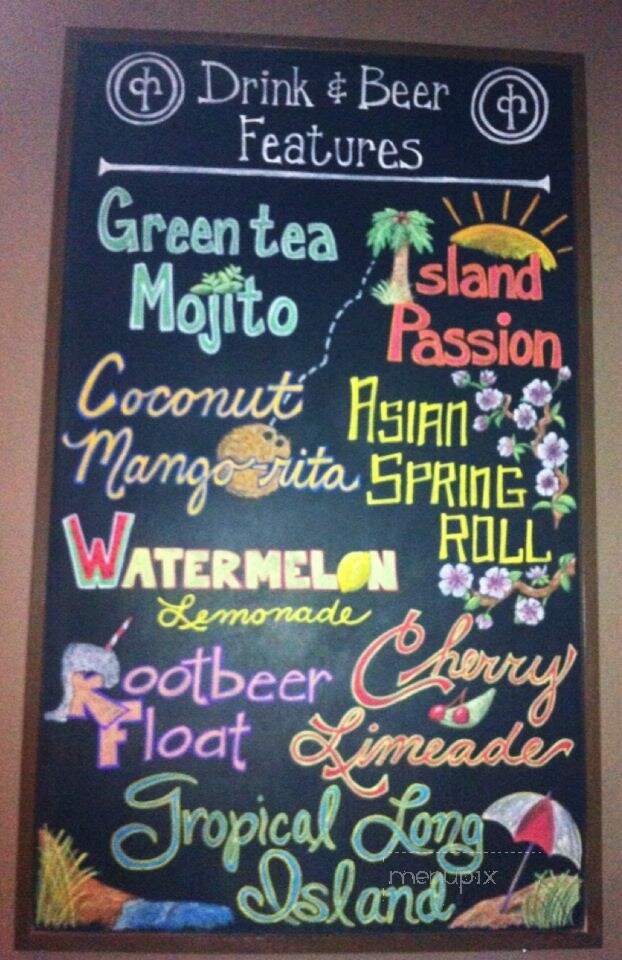 Drink & Beer
Features
Green tea
Mojito
Island
Passion
Coconut
Mango-rita
Asian
Spring
Roll
Watermelon
Lemonade
Rootbeer
Float
Cherry
Limeade
Tropical Long
Island
menupix